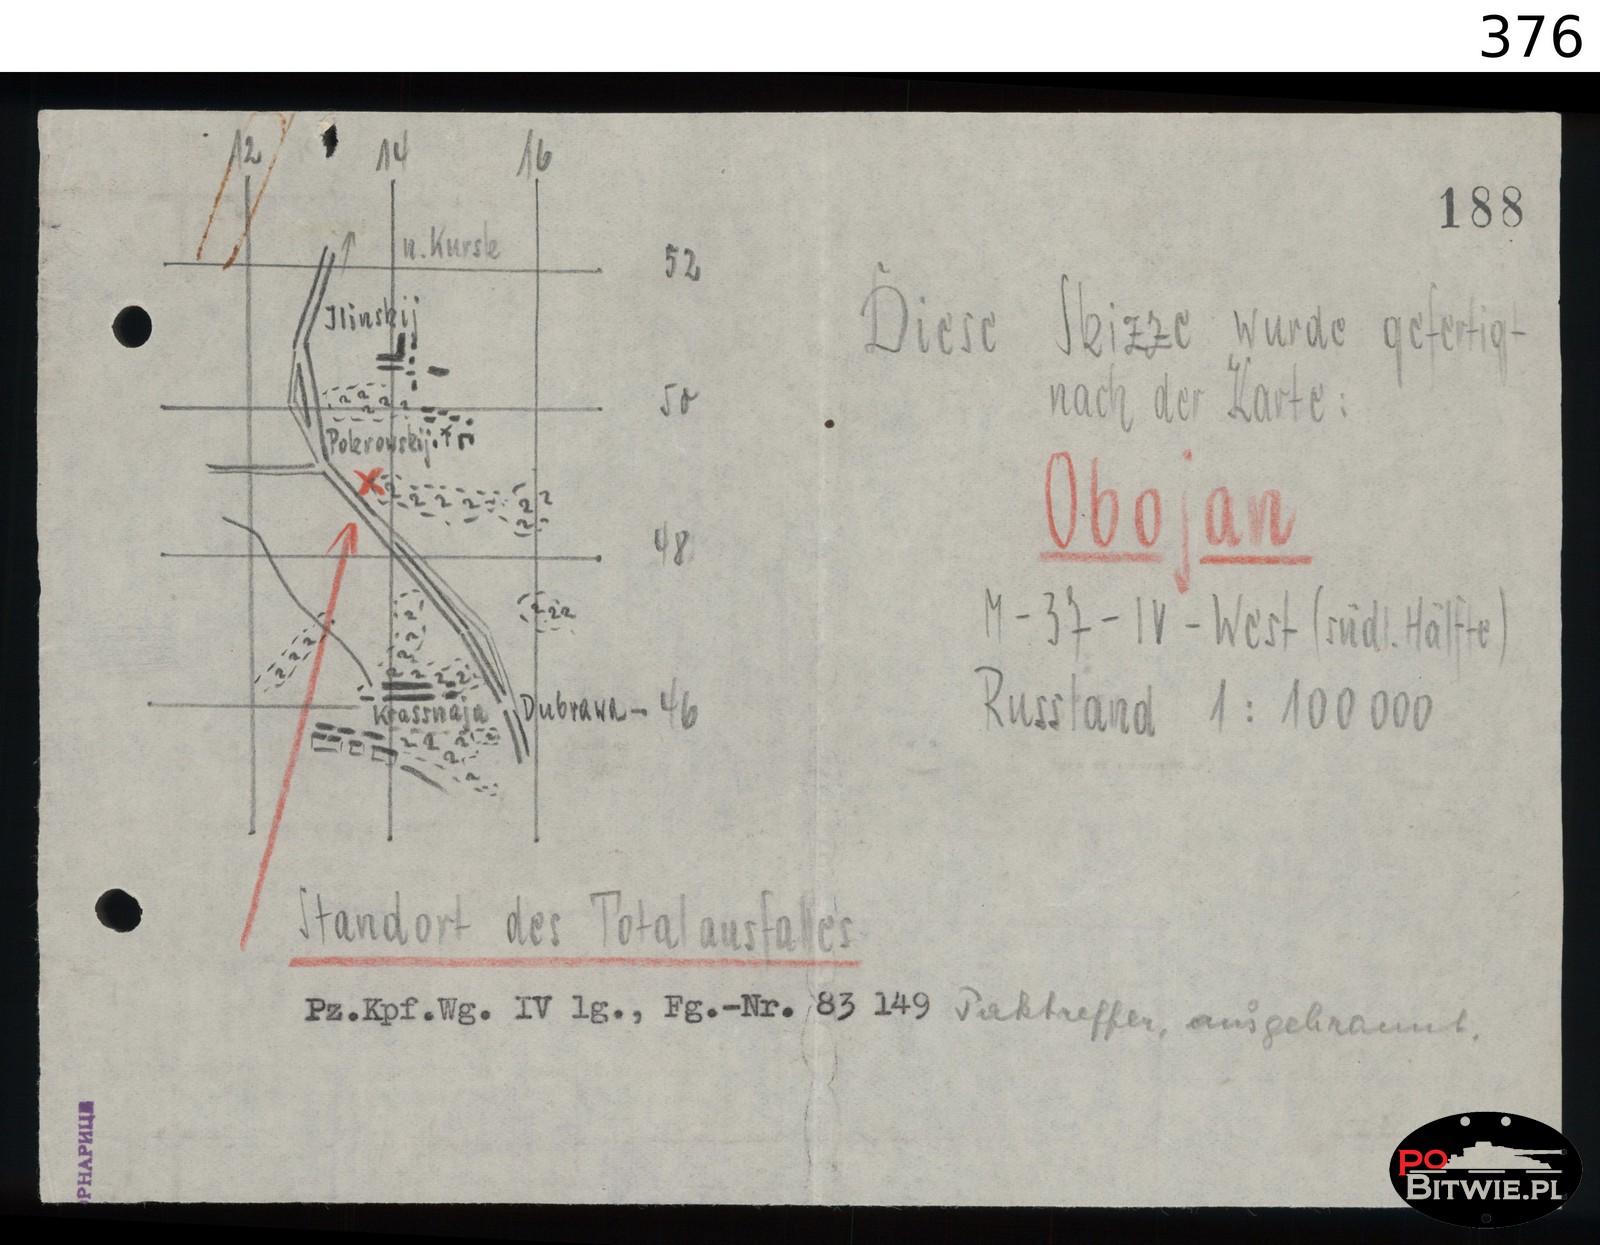 376
188
12 14 16
n. Kursk
52
Ilinskij
50
Pokrowskij
48
Krassnaja Dubrawa - 46
Diese Skizze wurde gefertigt
nach der Karte:
Obojan
M-37-IV-West (südl. Hälfte)
Russland 1:100 000
Standort des Totalausfalles
Pz.Kpf.Wg. IV lg., Fg.-Nr. 83 149 Paktreffer, ausgebrannt.
PO
BITWIE.PL